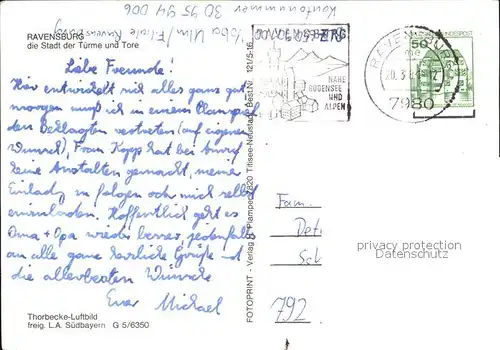 Kontonummer 30 95 94 006
Ulm / Filiale Ravensburg
RAVENSBURG
die Stadt der Türme und Tore
Liebe Freunde!
Hier entwickelt sich alles ganz gut
morgen muß ich in einem Planspiel
den Beklagten vertreten (auf eigenen
Wunsch), Frau Kopp hat bei Anruf
keine Anstalten gemacht, meine
Einladg zu folgen och mich selbst
einzuladen. Hoffentlich geht es
Oma + Opa wieder besser, jedenfalls
an alle ganz herzliche Grüße und
die allerbesten Wünsche
Euer Michael
Thorbecke-Luftbild
freig. L.A. Südbayern G 5/6350
FOTOPRINT - Verlag Plamper, 7820 Titisee-Neustadt, Best.Nr. 121/5-16
RAVENSBURG
NAHE
BODENSEE
UND
ALPEN
RAVENSBURG
20.3.8
12
7980
DEUTSCHE BUNDESPOST
50
Fam.
792
privacy protection
Datenschutz